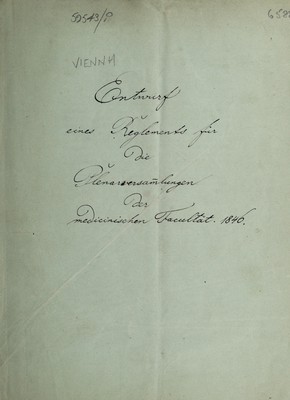 59543/P
658
VIENNA
Entwurf
eines Reglements für
die
Plenarversam̅lungen
der
medicinischen Facultät. 1846.